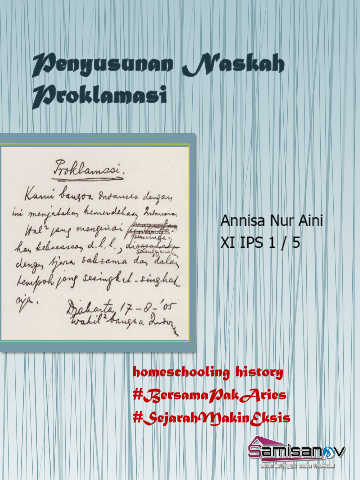 Penyusunan Naskah
Proklamasi
Proklamasi.
Kami bangsa Indonesia dengan
ini menjatakan kemerdekaan Indonesia.
Hal2 jang mengenai
kan kekoeasaan d.l.l.,
dengan tjara saksama dan dalam
tempoh jang sesingkat-singkat
nja.
Djakarta 17-8-'05
Wakil2 bangsa Indon
Annisa Nur Aini
XI IPS 1 / 5
homeschooling history
#BersamaPakAries
#SejarahMakinEksis
Samisanov